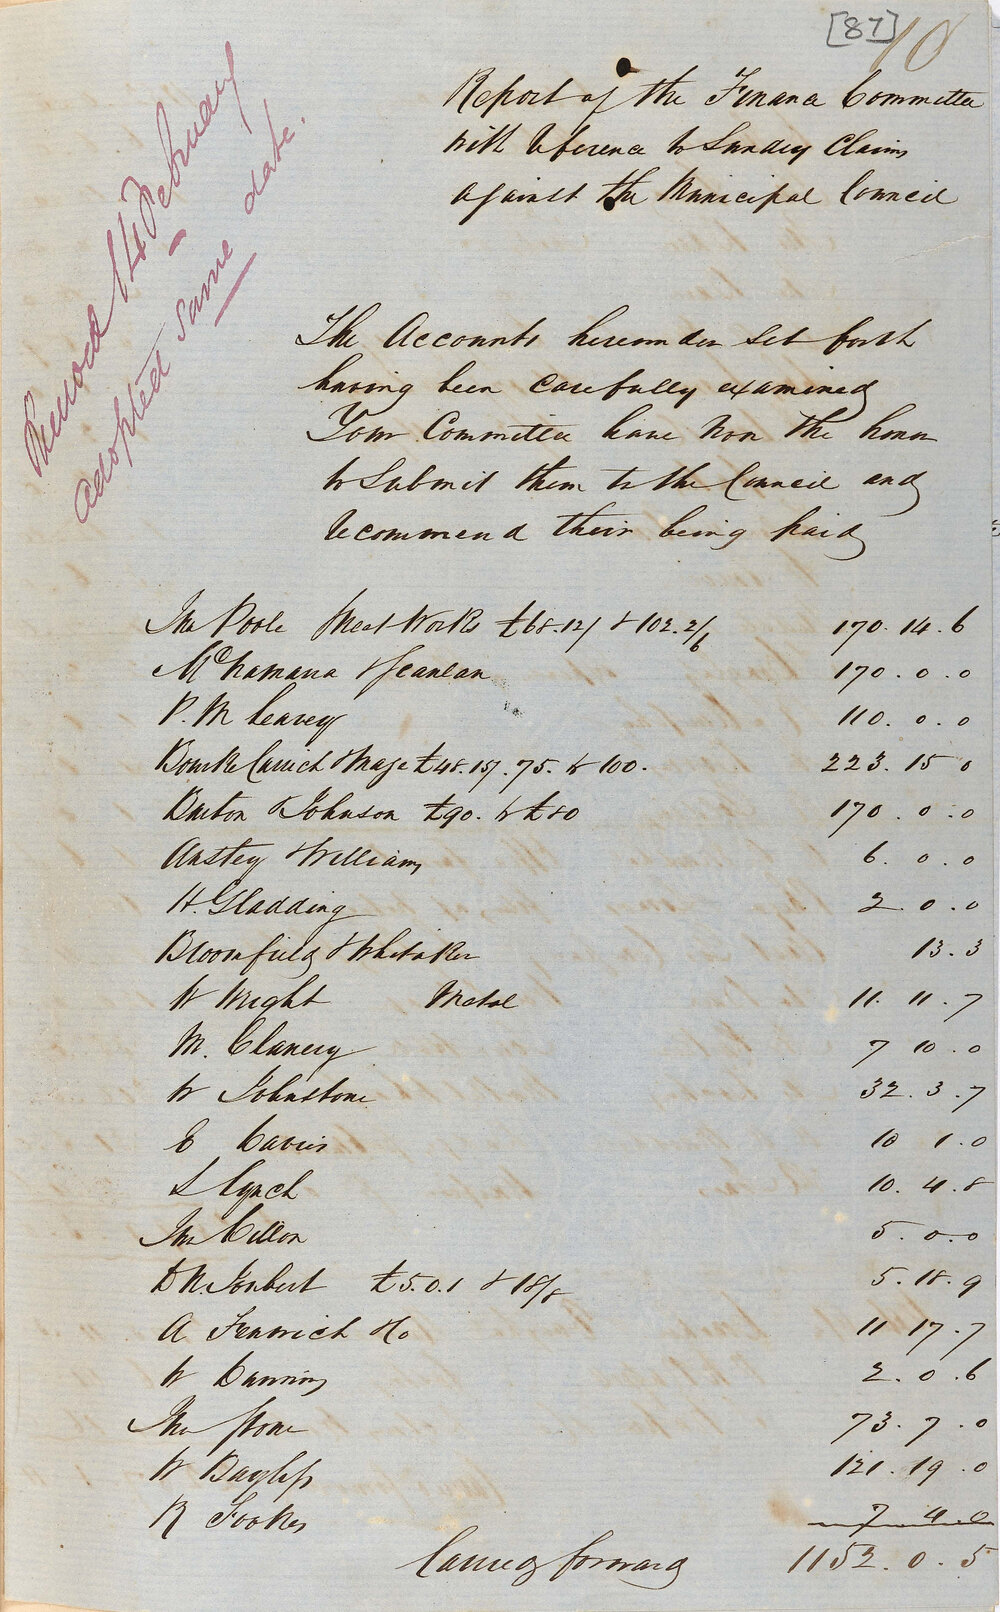 [87] 10
Report of the Finance Committee
with reference to Sundry Claims
against the Municipal Council
Received 14 February
adopted same date.
The Accounts hereunder set forth
having been carefully examined
Your Committee have now the honor
to Submit them to the Council and
recommend their being paid
Jno Poole Street Works £68.12/ & 102.2/6 170.14.6
McNamara & Scanlan 170.0.0
P. M Leavey 110.0.0
Bourke Carrick & Mage £48.15/. 75. & 100. 223.15 0
Burton & Johnson £90. & £80 170.0.0
Anstey & Williams 6.0.0
H. Gladding 2 0.0
Bloomfield & Whitaker 13.3
W Wright Metal 11.11.7
M. Clancey 7 10.0
W Johnstone 32.3.7
E Davies 10 1.0
S Lynch 10.4.8
Jno Dillon 5.0.0
D N. Joubert £5.0.1 & 18/8 5.18.9
A Fenwick & Co 11 17.7
W Dawning 2.0.6
Jno Stone 73.7.0
W Bayliss 121.19.0
R Fookes 7 4.0
Carried forward 1152.0.5